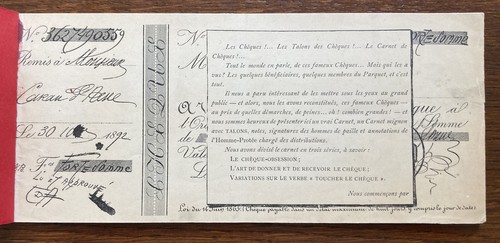 No 3627490559
Remis à Monsieur
Caran d'Ache
Le 30 1892
FORTE-SOMME
Lu et approuvé
CHEQUE
No
FORTE-SOMME
M
Les Chèques !... Les Talons des Chèques !... Le Carnet de
Chèques !...
Tout le monde en parle, de ces fameux Chèques... Mais qui les a
vus? Les quelques bénéficiaires, quelques membres du Parquet, et c'est
tout.
Il nous a paru intéressant de les mettre sous les yeux au grand
public — et alors, nous les avons reconstitués, ces fameux Chèques — au
prix de quelles démarches, de peines... oh! combien grandes! — et
nous sommes heureux de présenter ici un vrai Carnet, un Carnet mignon
avec TALONS, notes, signatures des hommes de paille et annotations de
l'Homme-Protée chargé des distributions.
Nous avons divisé le carnet en trois séries, à savoir :
LE CHÈQUE-OBSESSION;
L'ART DE DONNER ET DE RECEVOIR LE CHÈQUE;
VARIATIONS SUR LE VERBE « TOUCHER LE CHÈQUE ».
Nous commençons par
que à
Somme
Loi du 14 Juin 1865: Chèque payable dans un délai maximum de huit jours (y compris le jour de date)